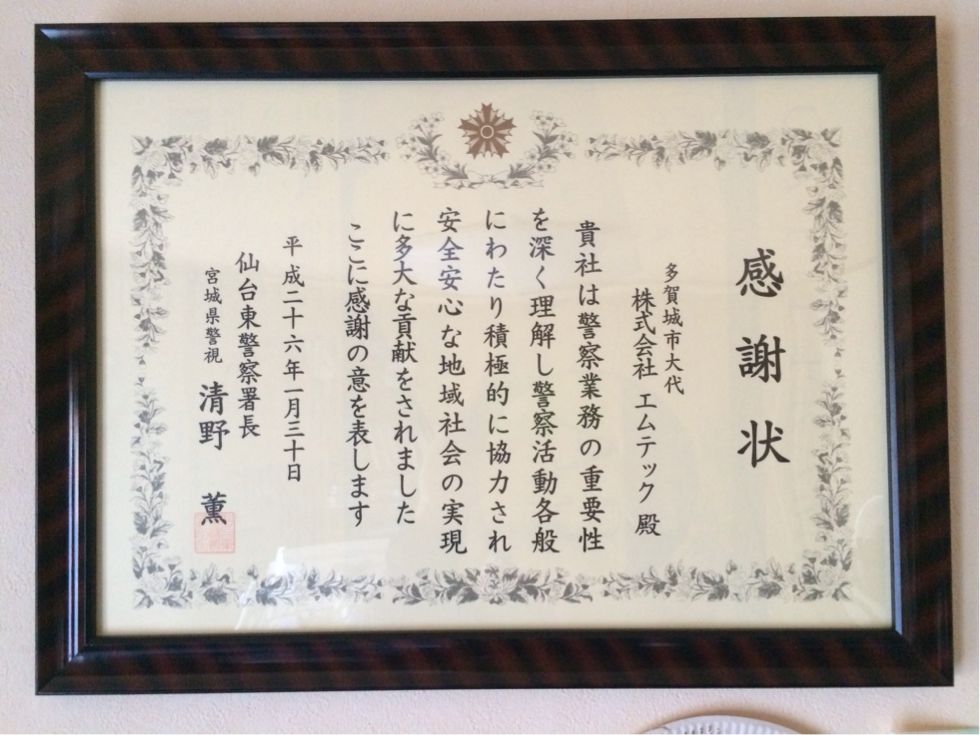 感謝状
多賀城市大代
株式会社 エムテック 殿
貴社は警察業務の重要性
を深く理解し警察活動各般
にわたり積極的に協力され
安全安心な地域社会の実現
に多大な貢献をされました
ここに感謝の意を表します
平成二十六年一月三十日
仙台東警察署長
宮城県警視 清野 薫